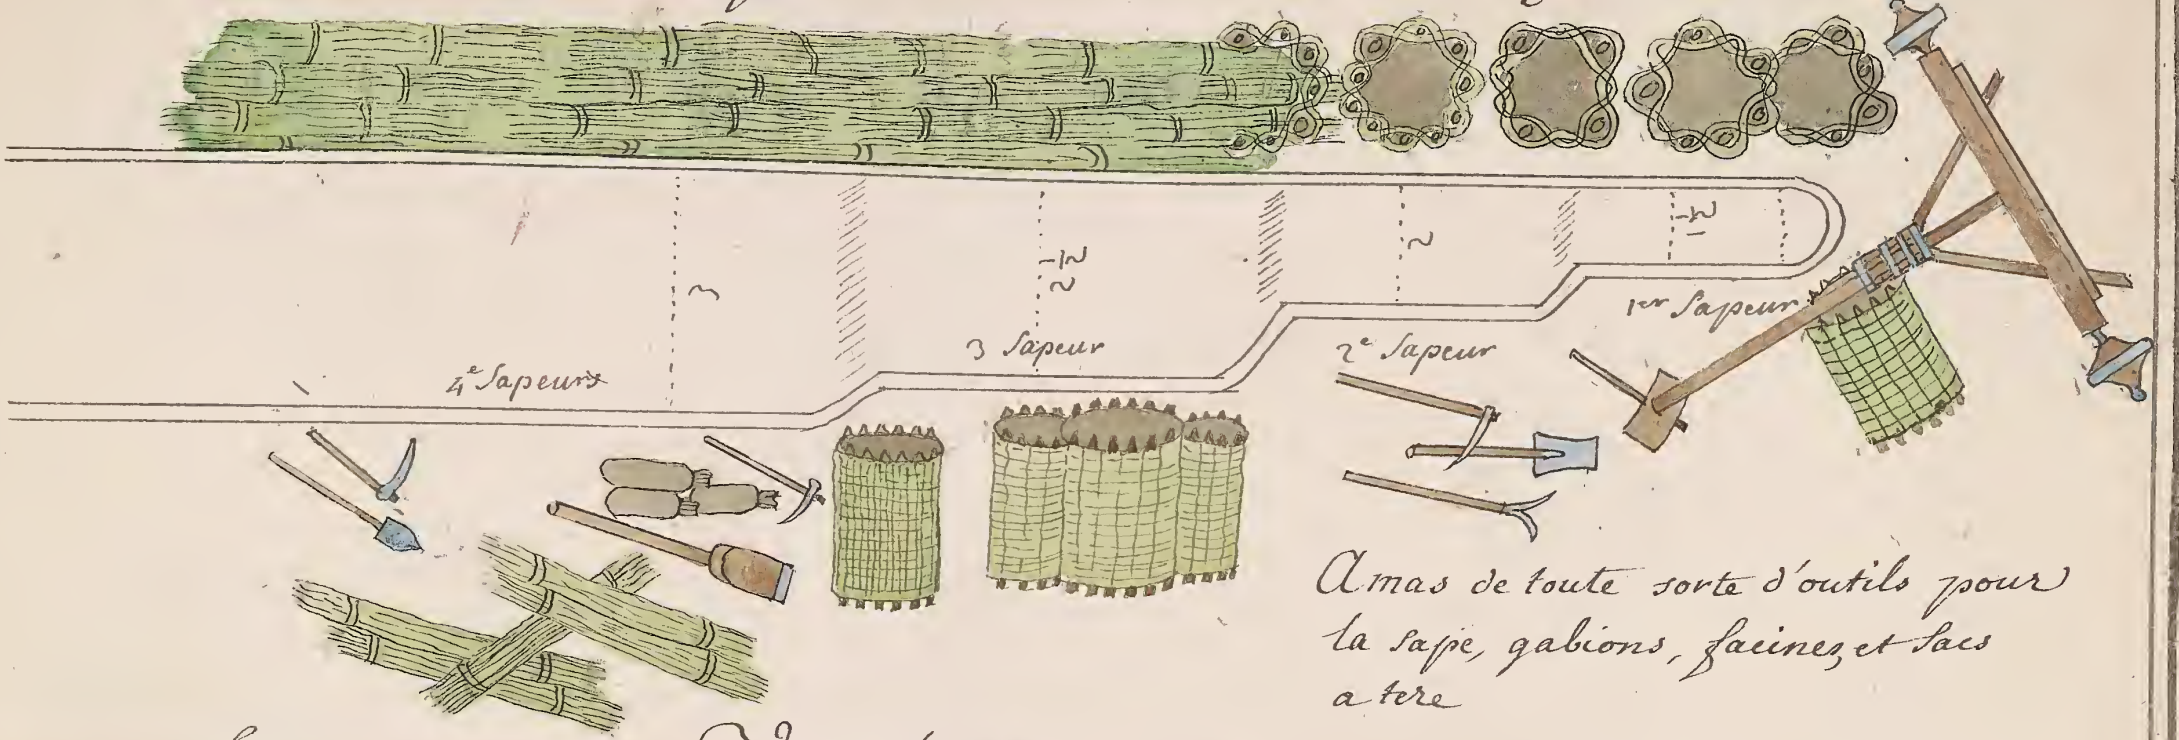 1 1/2
2
2 1/2
3
1er Sapeur
2e Sapeur
3 Sapeur
4e Sapeurs
Amas de toute sorte d'outils pour
la sape, gabions, facines, et sacs
a tere